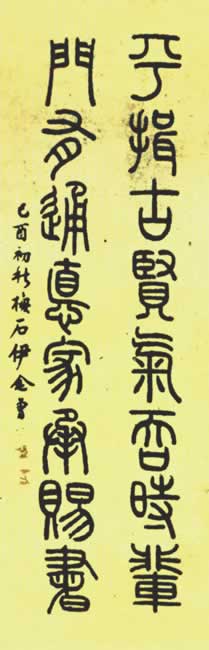 平揖古賢氣吞時輩
門有通德家承賜書
己酉初秋梅石伊念曾